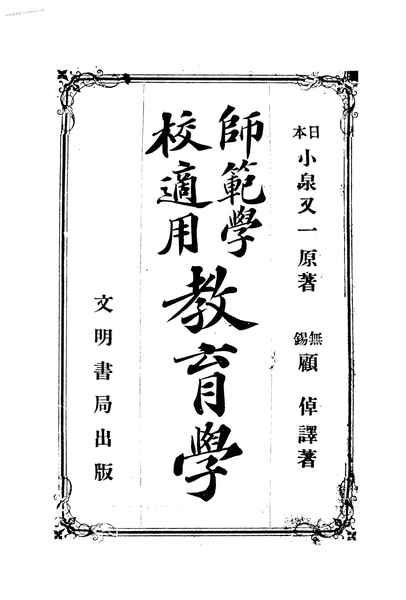 日本 小泉又一原著
無錫 顧倬譯著
師範學校適用
教育學
文明書局出版